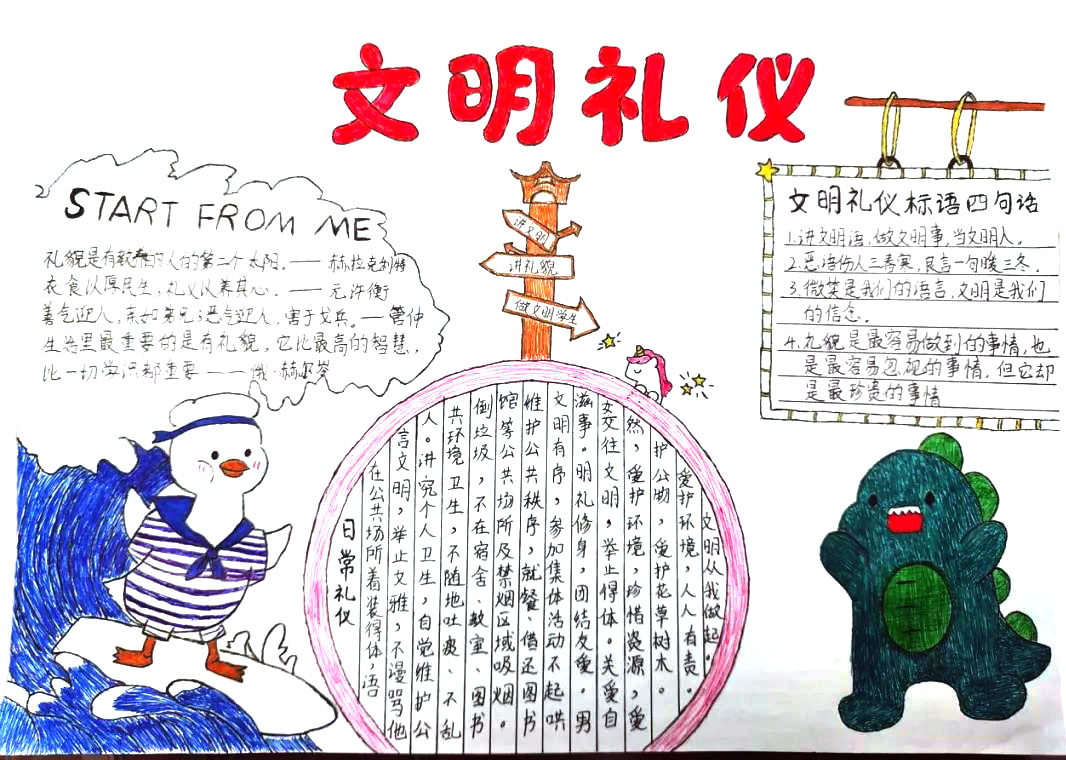 文明礼仪
START FROM ME
礼貌是有的人的第二个太阳.——赫拉克利特
衣食以厚民生,礼义以养其心.——元许衡
善气迎人,亲如弟兄;恶气迎人,害于戈兵.—管仲
生活里最重要的是有礼貌,它比最高的智慧,
比一切学识都重要——俄·赫尔岑
讲文明
讲礼貌
做文明学生
文明礼仪标语四句话
1.讲文明语,做文明事,当文明人.
2.恶语伤人三春寒,良言一句暖三冬.
3.微笑是我们的语言,文明是我们
的信念.
4.礼貌是最容易做到的事情,也
是最容易忽视的事情.但它却
是最珍贵的事情
日常礼仪
在公共场所着装得体,语
言文明,举止文雅,不谩骂他
人。讲究个人卫生,自觉维护公
共环境卫生,不随地吐痰、不乱
倒垃圾,不在宿舍、教室、图书
馆等公共场所及禁烟区域吸烟。
维护公共秩序,就餐、借还图书
文明有序,参加集体活动不起哄
滋事。明礼修身,团结友爱。男
女交往文明,举止得体。关爱自
然,爱护环境,珍惜资源,爱
护公物,爱护花草树木。
爱护环境,人人有责。
文明从我做起。